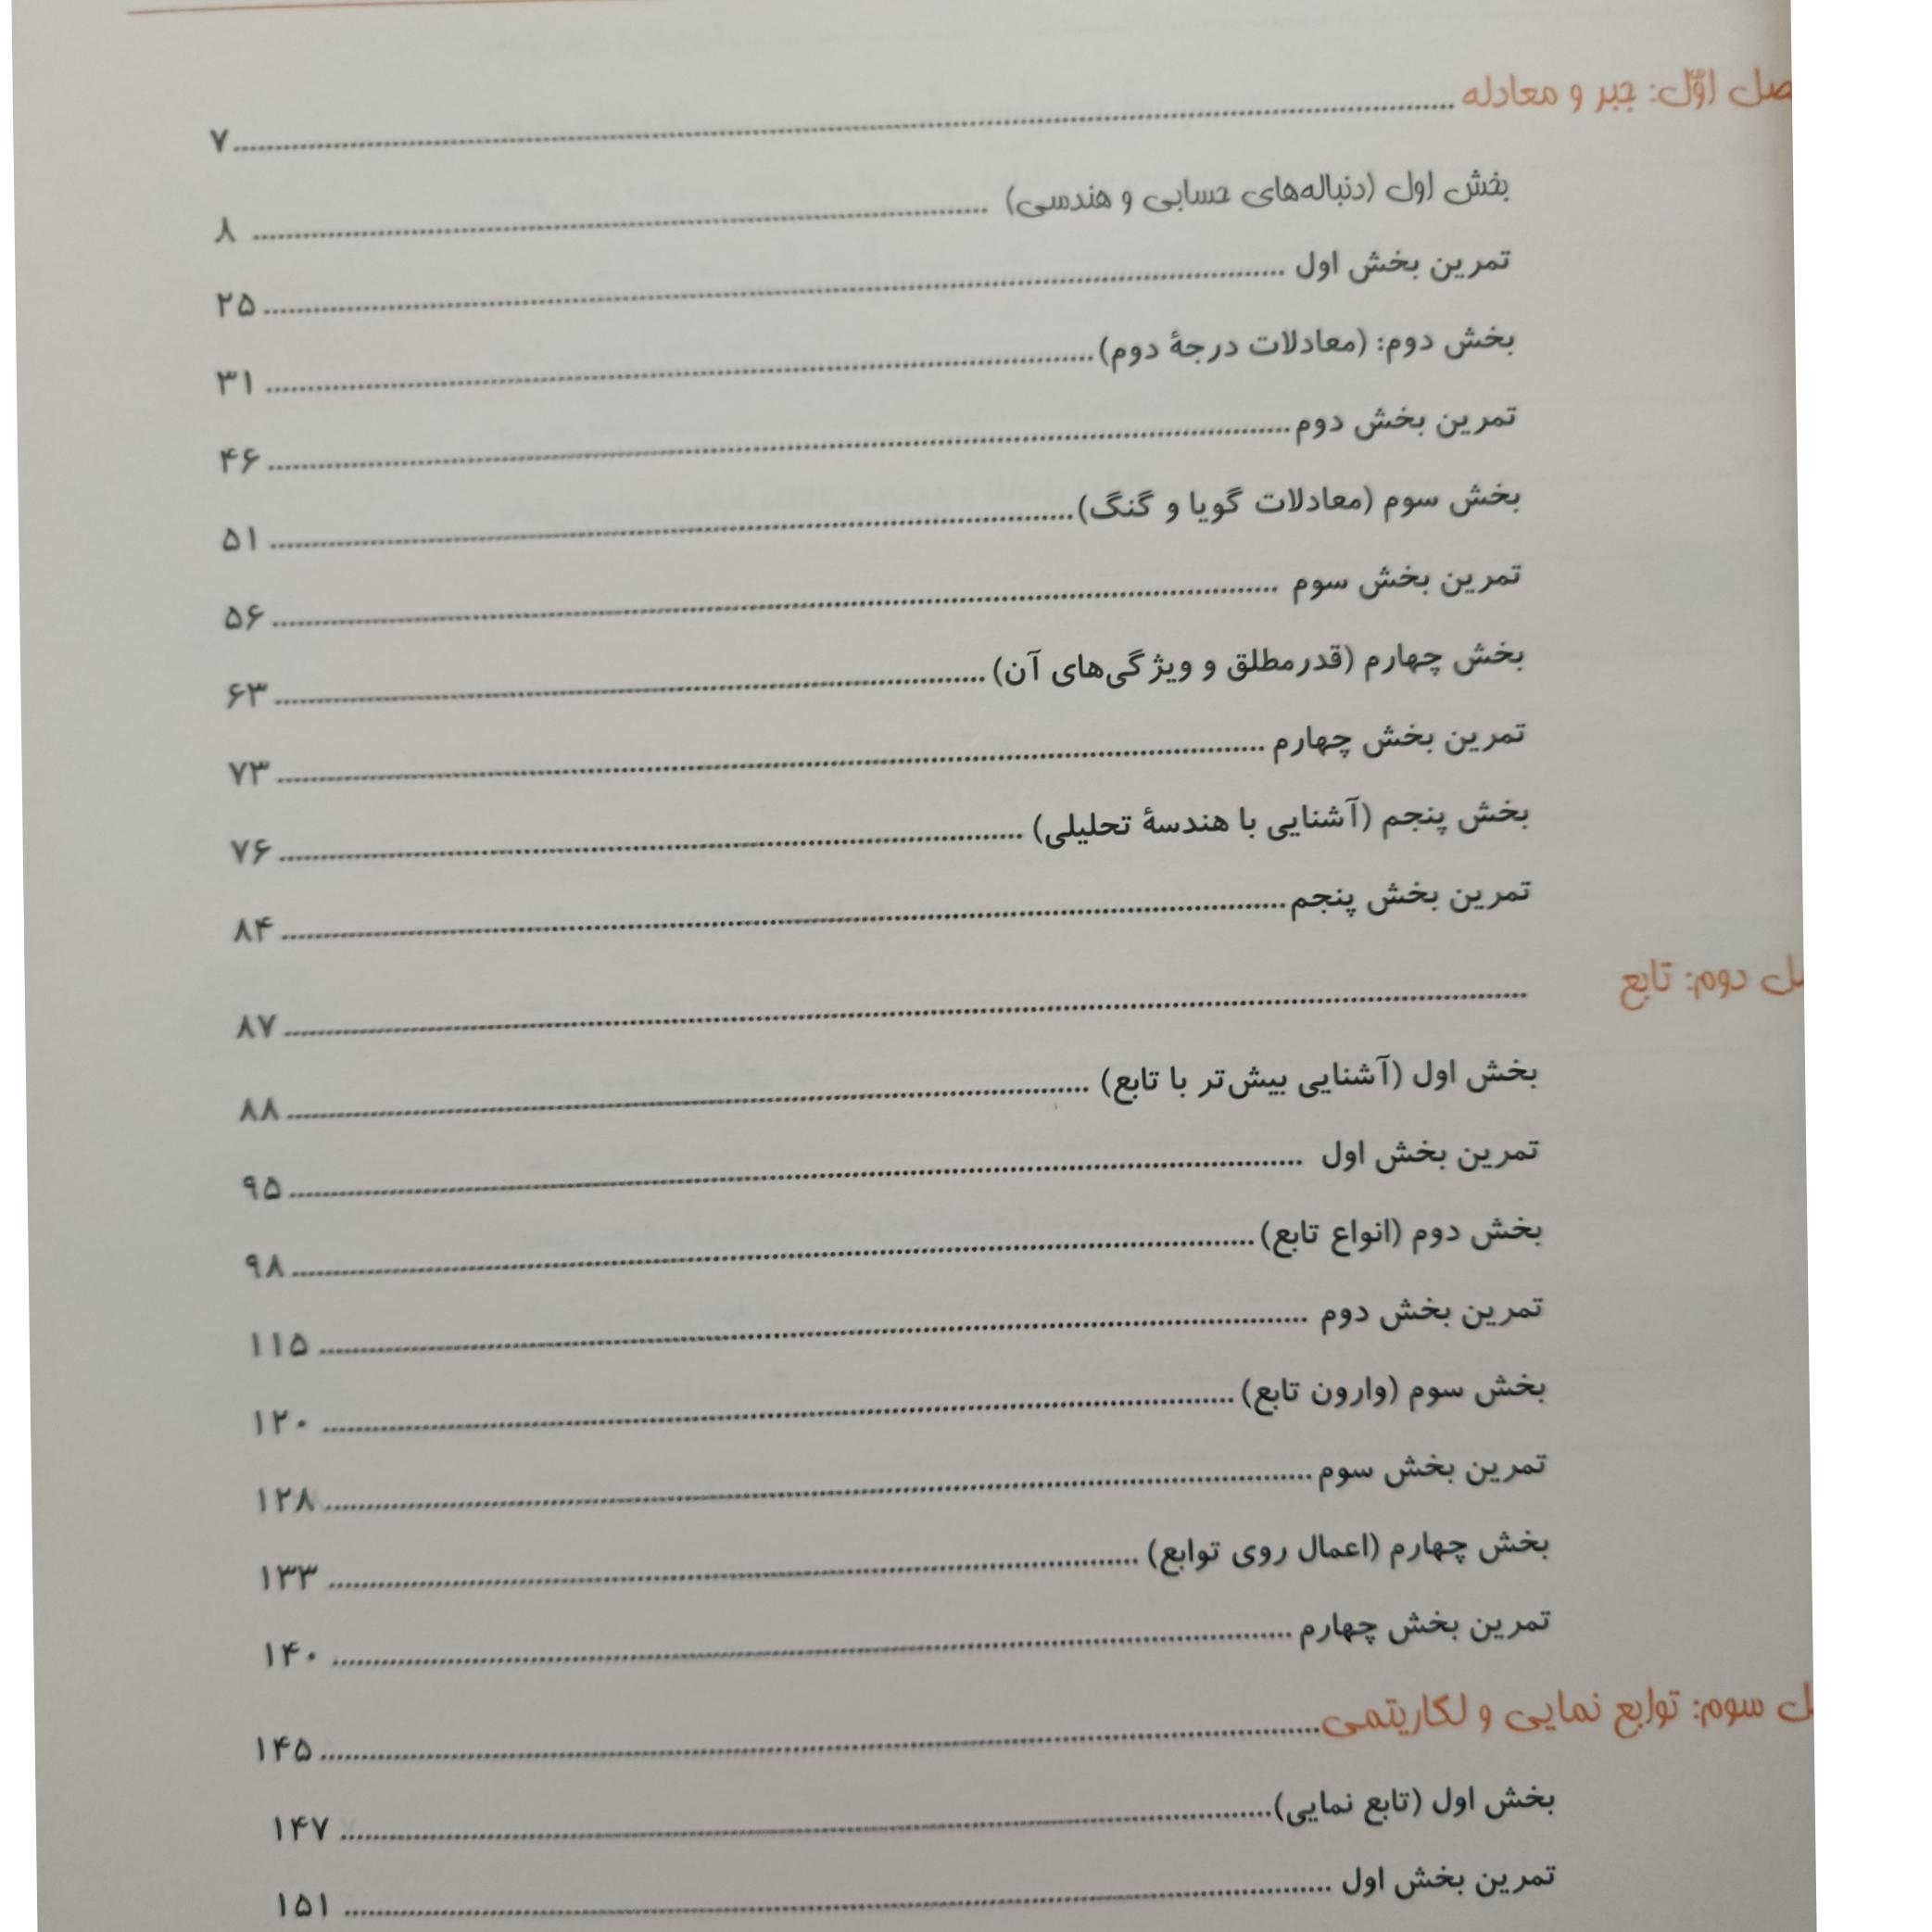 صل اوّل: جبر و معادله ........ ۷
بخش اول (دنباله‌های حسابی و هندسی) ........ ۸
تمرین بخش اول ........ ۲۵
بخش دوم: (معادلات درجهٔ دوم) ........ ۳۱
تمرین بخش دوم ........ ۴۶
بخش سوم (معادلات گویا و گنگ) ........ ۵۱
تمرین بخش سوم ........ ۵۶
بخش چهارم (قدرمطلق و ویژگی‌های آن) ........ ۶۳
تمرین بخش چهارم ........ ۷۳
بخش پنجم (آشنایی با هندسهٔ تحلیلی) ........ ۷۶
تمرین بخش پنجم ........ ۸۴
ل دوم: تابع ........ ۸۷
بخش اول (آشنایی بیش‌تر با تابع) ........ ۸۸
تمرین بخش اول ........ ۹۵
بخش دوم (انواع تابع) ........ ۹۸
تمرین بخش دوم ........ ۱۱۵
بخش سوم (وارون تابع) ........ ۱۲۰
تمرین بخش سوم ........ ۱۲۸
بخش چهارم (اعمال روی توابع) ........ ۱۳۳
تمرین بخش چهارم ........ ۱۴۰
ل سوم: توابع نمایی و لگاریتمی ........ ۱۴۵
بخش اول (تابع نمایی) ........ ۱۴۷
تمرین بخش اول ........ ۱۵۱